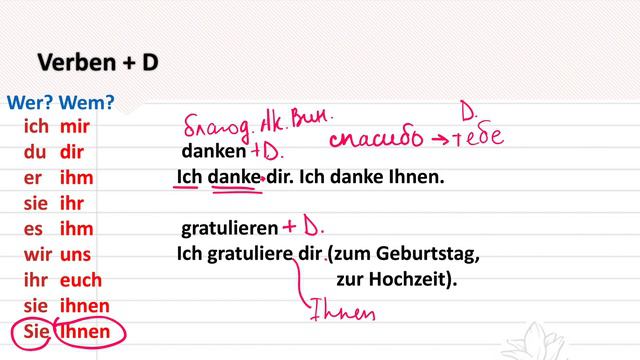 Verben + D
Wer? Wem?
ich mir
du dir
er ihm
sie ihr
es ihm
wir uns
ihr euch
sie ihnen
Sie Ihnen
благод. Ak. Вин.
D.
спасибо → тебе
danken + D.
Ich danke dir. Ich danke Ihnen.
gratulieren + D.
Ich gratuliere dir (zum Geburtstag,
zur Hochzeit).
Ihnen